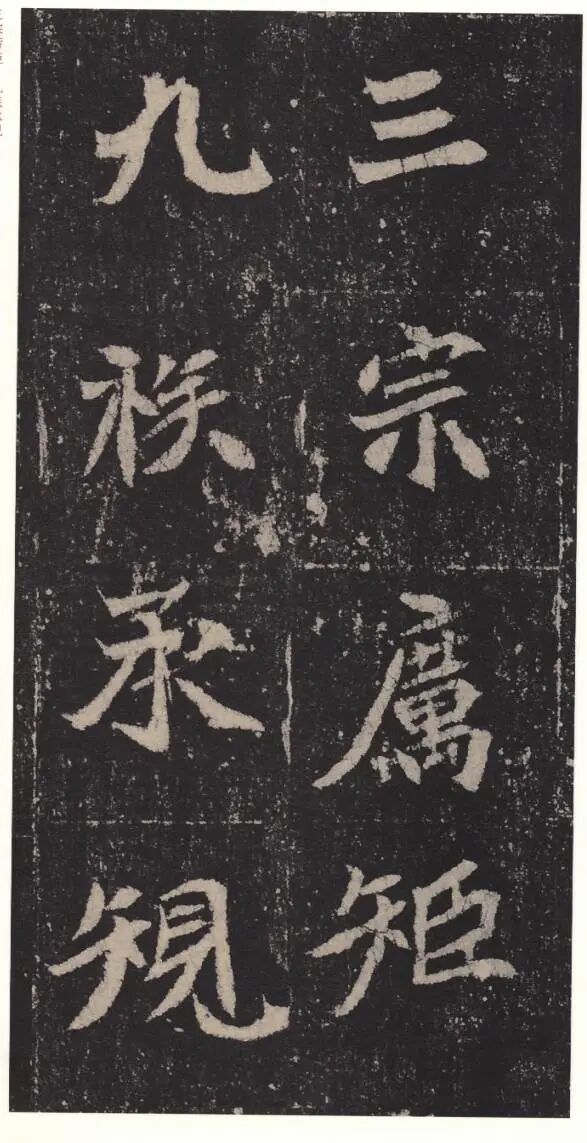 三宗厲矩
九族承規